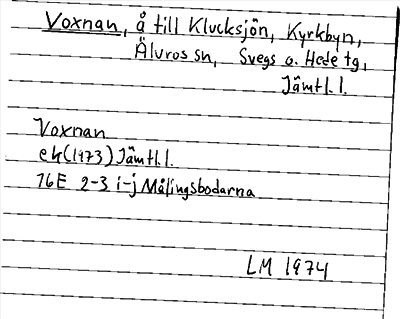 Voxnan, å till Klucksjön, Kyrkbyn,
Älvros sn, Svegs o. Hede tg,
Jämtl. l.
Voxnan
ek (1973) Jämtl. l.
16E 2-3 i-j Målingsbodarna
LM 1974